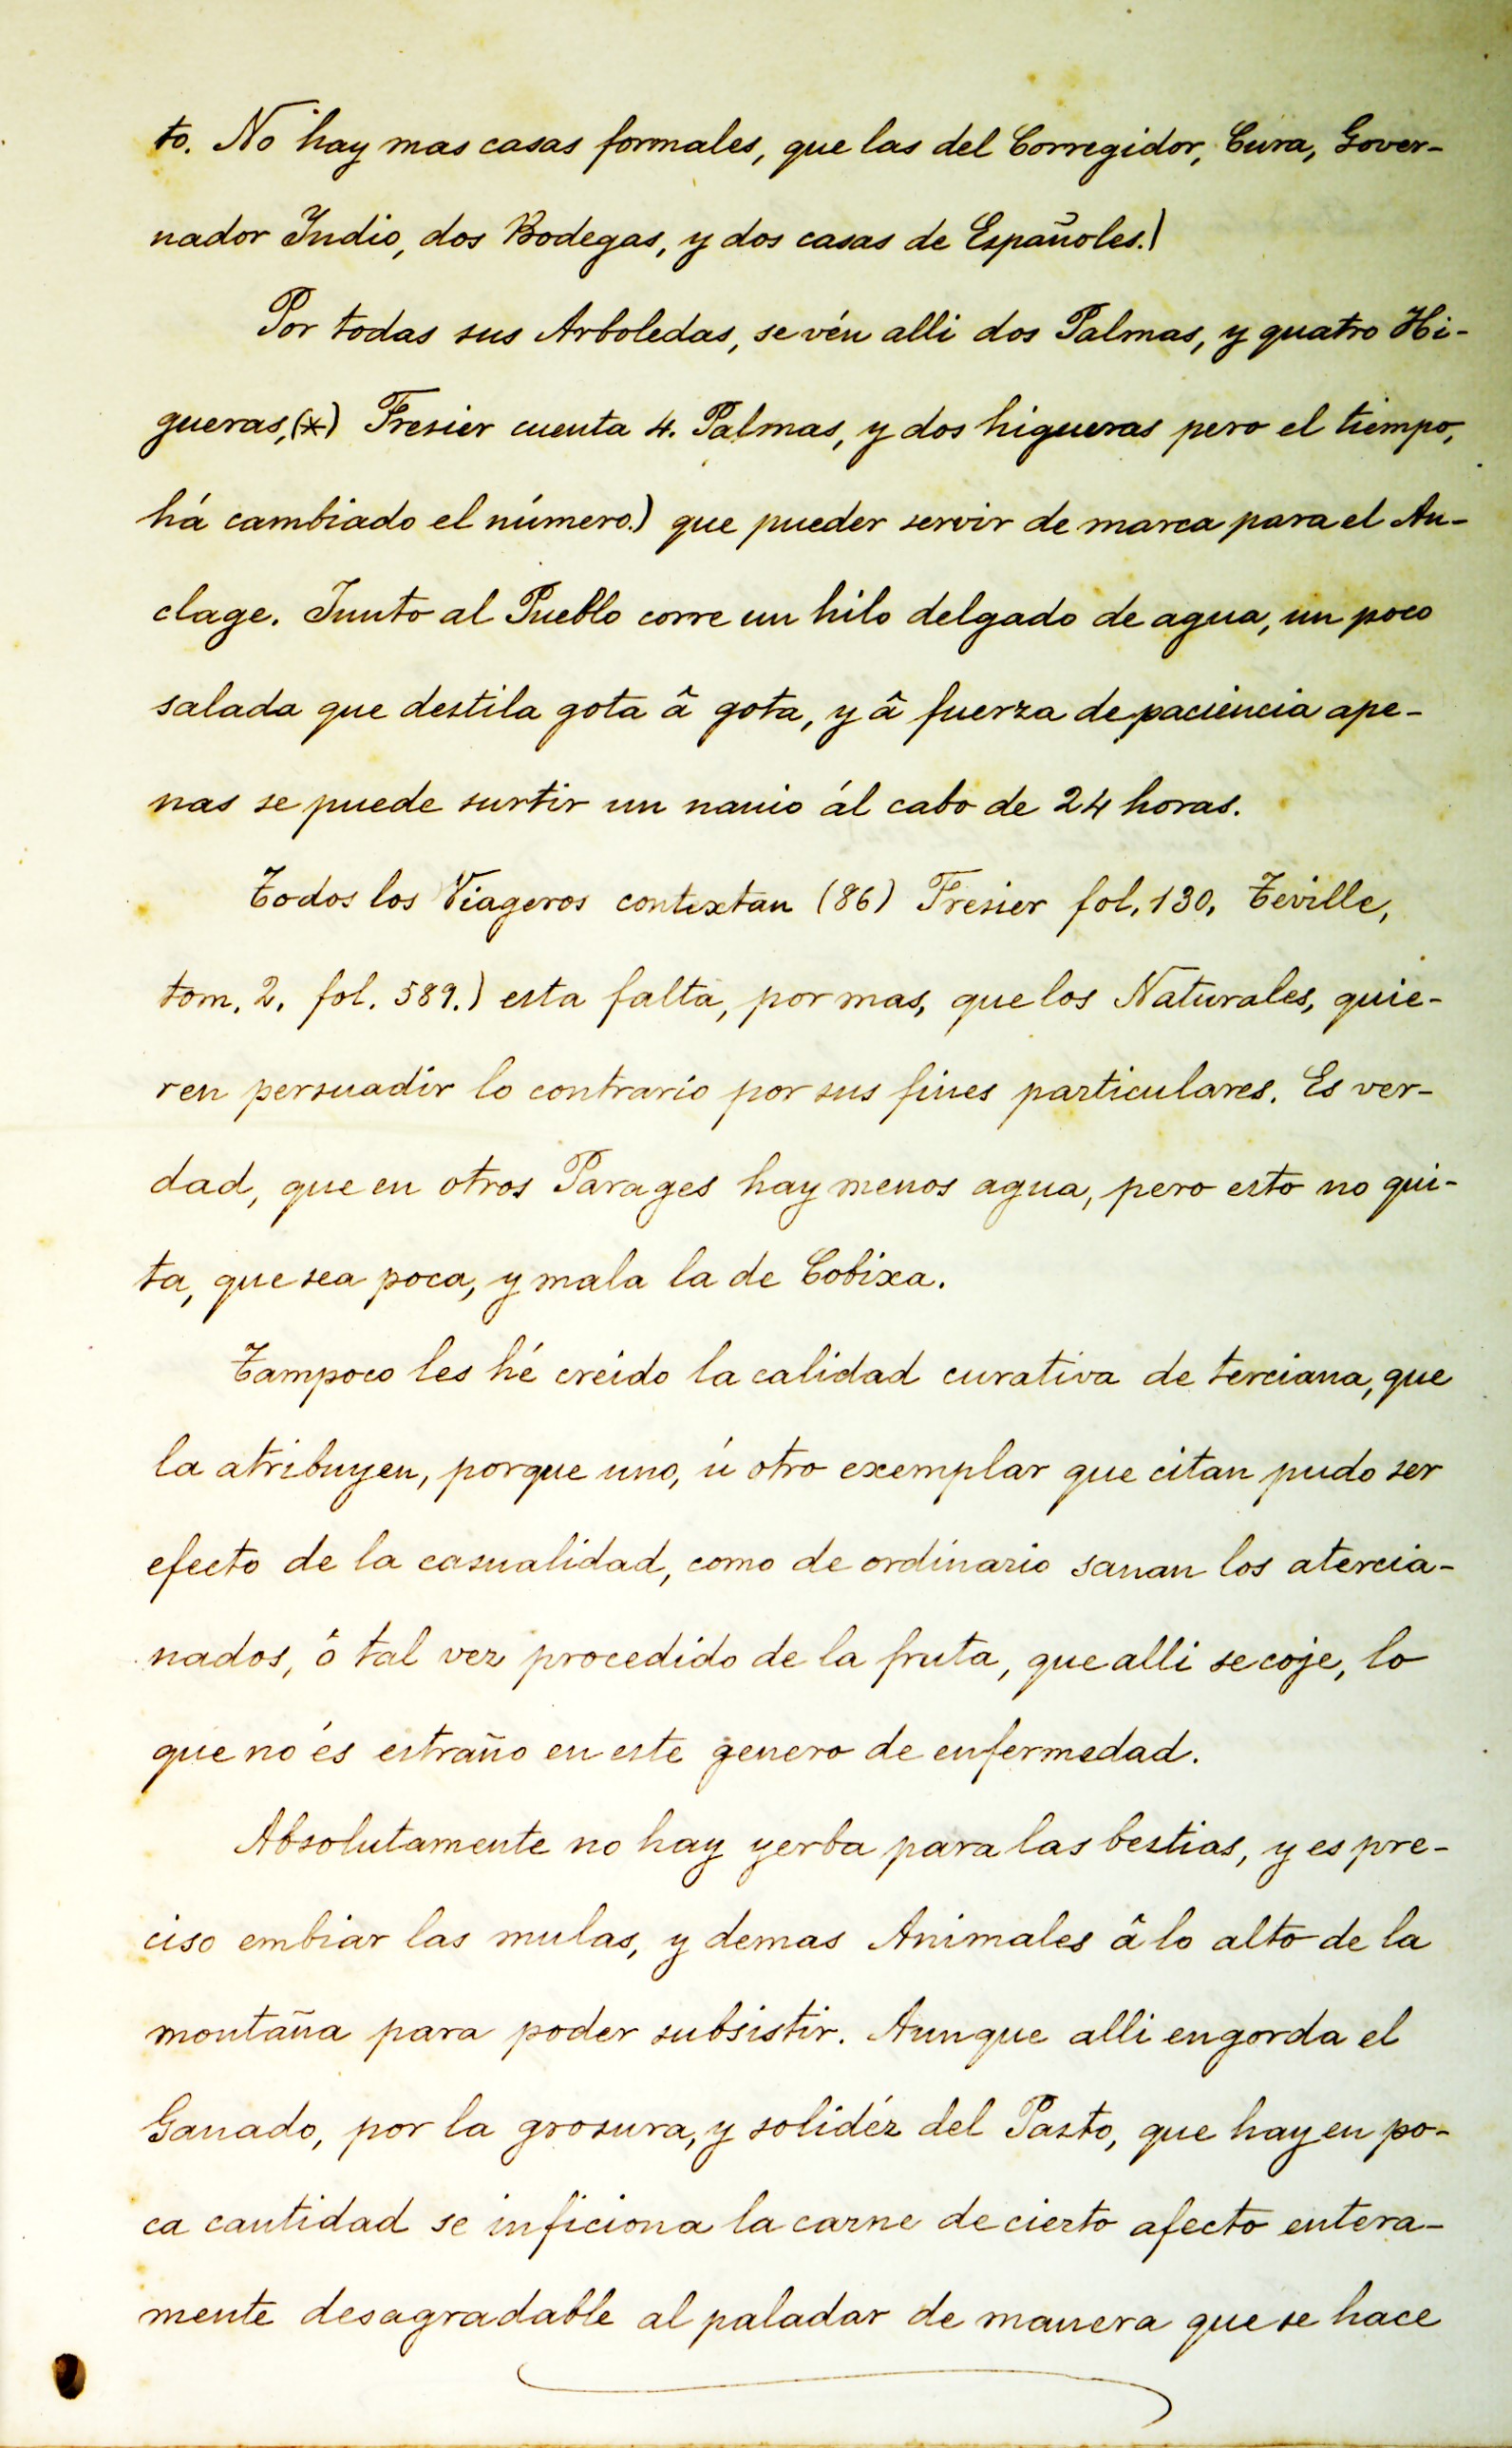 to. No hay mas casas formales, que las del Corregidor, Cura, Gover-
nador Yndio, dos Bodegas, y dos casas de Españoles.)
Por todas sus Arboledas, se vén alli dos Palmas, y quatro Hi-
gueras,(*) Fresier cuenta 4. Palmas, y dos higueras pero el tiempo,
há cambiado el número.) que pueder servir de marca para el An-
clage. Junto al Pueblo corre un hilo delgado de agua, un poco
salada que destila gota â gota, y â fuerza de paciencia ape-
nas se puede surtir un navio ál cabo de 24 horas.
Todos los Viageros contextan (86) Fresier fol. 130. Teville,
tom. 2. fol. 589.) esta falta, por mas, que los Naturales, quie-
ren persuadir lo contrario por sus fines particulares. Es ver-
dad, que en otros Parages hay menos agua, pero esto no qui-
ta, que sea poca, y mala la de Cobixa.
Tampoco les hé creido la calidad curativa de terciana, que
la atribuyen, porque uno, ú otro exemplar que citan pudo ser
efecto de la casualidad, como de ordinario sanan los atercia-
nados, ô tal vez procedido de la fruta, que alli se coje, lo
que no és estraño en este genero de enfermedad.
Absolutamente no hay yerba para las bestias, y es pre-
ciso embiar las mulas, y demas Animales â lo alto de la
montaña para poder subsistir. Aunque alli engorda el
Ganado, por la grosura, y solidéz del Pasto, que hay en po-
ca cantidad se inficiona la carne de cierto afecto entera-
mente desagradable al paladar de manera que se hace